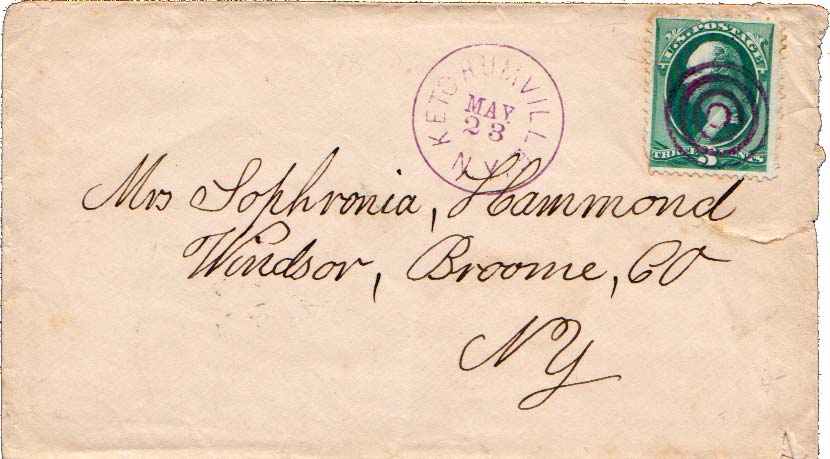 U.S. POSTAGE
KETCHUMVILLE
MAY
23
N.Y.
THREE 3 CENTS
Mrs Sophronia, Hammond
Windsor, Broome, CO
NY